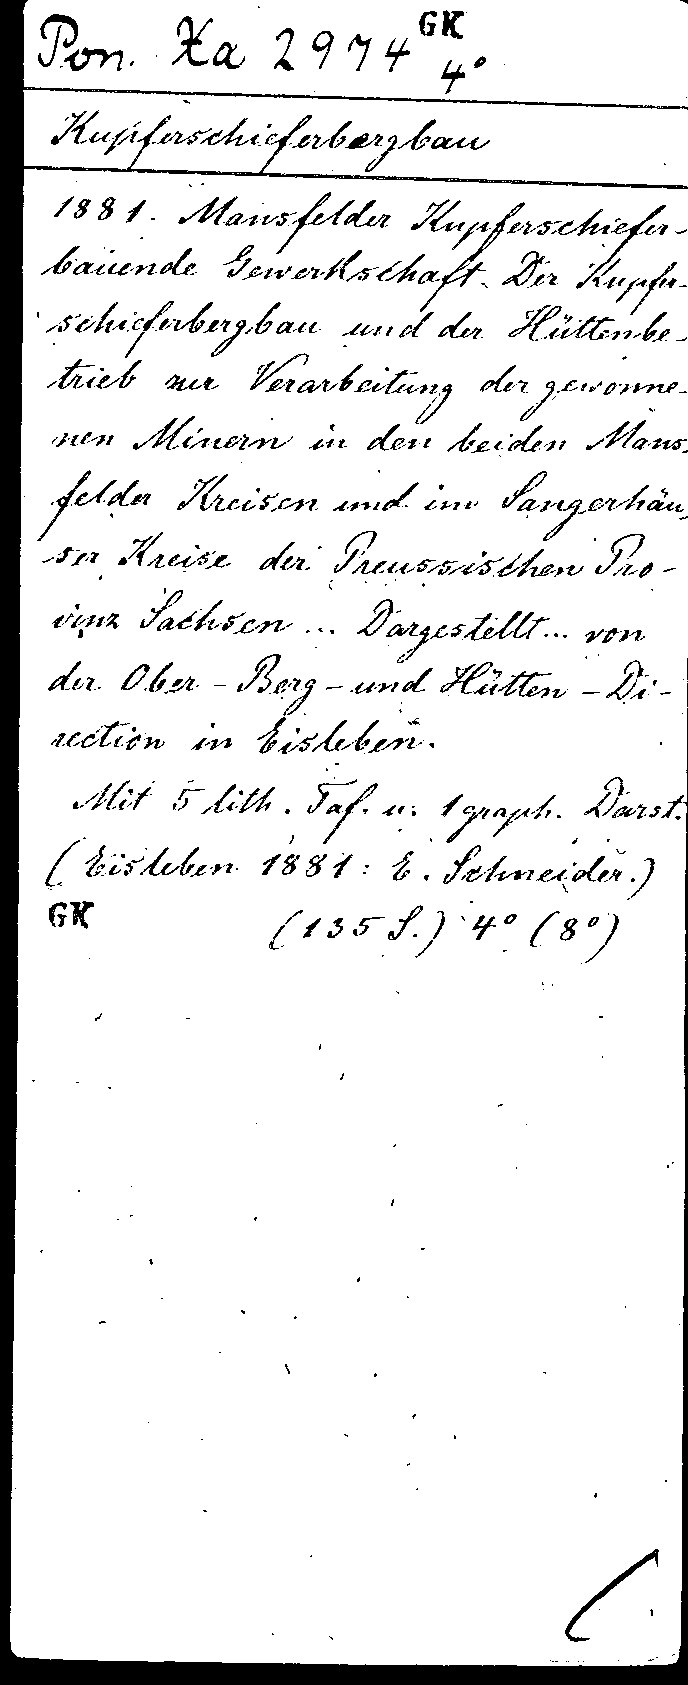 Pon. Xa 2974 GK
4°
Kupferschieferbergbau
1881. Mansfelder Kupferschiefer-
bauende Gewerkschaft. Der Kupfer-
schieferbergbau und der Hüttenbe-
trieb zur Verarbeitung der gewonne-
nen Minern in den beiden Mans-
felder Kreisen und im Sangerhäu-
ser Kreise der Preussischen Pro-
vinz Sachsen ... Dargestellt ... von
der Ober-Berg-und Hütten-Di-
rection in Eisleben.
Mit 5 lith. Taf. u. 1 graph. Darst.
(Eisleben 1881: E. Schneider.)
GK (135 S.) 4° (8°)